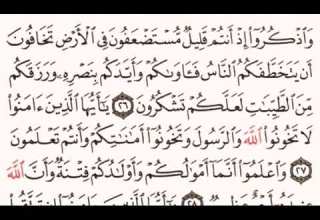 وَاذْكُرُوا إِذْ أَنتُمْ قَلِيلٌ مُّسْتَضْعَفُونَ فِي الْأَرْضِ تَخَافُونَ
أَن يَتَخَطَّفَكُمُ النَّاسُ فَـَٔاوَىٰكُمْ وَأَيَّدَكُم بِنَصْرِهِۦ وَرَزَقَكُم
مِّنَ الطَّيِّبَـٰتِ لَعَلَّكُمْ تَشْكُرُونَ ٢٦ يَـٰٓأَيُّهَا الَّذِينَ ءَامَنُوا
لَا تَخُونُوا اللَّهَ وَالرَّسُولَ وَتَخُونُوٓا أَمَـٰنَـٰتِكُمْ وَأَنتُمْ تَعْلَمُونَ
٢٧ وَاعْلَمُوٓا أَنَّمَآ أَمْوَٰلُكُمْ وَأَوْلَـٰدُكُمْ فِتْنَةٌ وَأَنَّ اللَّهَ